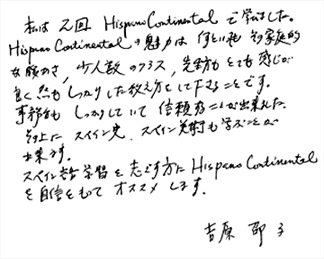 私は2回 Hispano Continental で学びました。
Hispano Continental の魅力は 何といっても その家庭的
な暖かさ、少人数のクラス、先生方もとても感じが
良く 然も しっかりした教え方をして下さることです。
事務も しっかりしていて 信頼することが出来ました。
その上に スペイン史、スペイン美術も学ぶことが
出来ます。
スペイン語学習を志ざす方に Hispano Continental
を自信をもって オススメします。
吉原 子